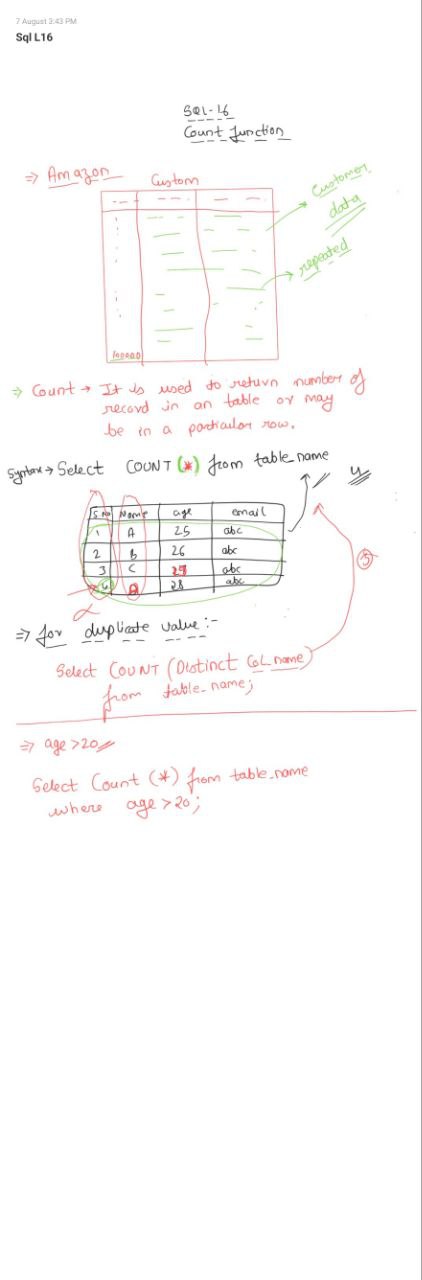 7 August 3:43 PM
Sql L16
SQL-16
Count function
⇒ Amazon
Custom
Customer
data
repeated
100000
⇒ Count → It is used to return number of
record in an table or may
be in a particular row.
Syntax → Select COUNT (*) from table_name
4
S.No Name age email
1 A 25 abc
2 B 26 abc
3 C 27 abc
4 28 abc
3
⇒ for duplicate value :-
Select COUNT (Distinct Col_name)
from table_name;
⇒ age >20
Select Count (*) from table_name
where age >20;